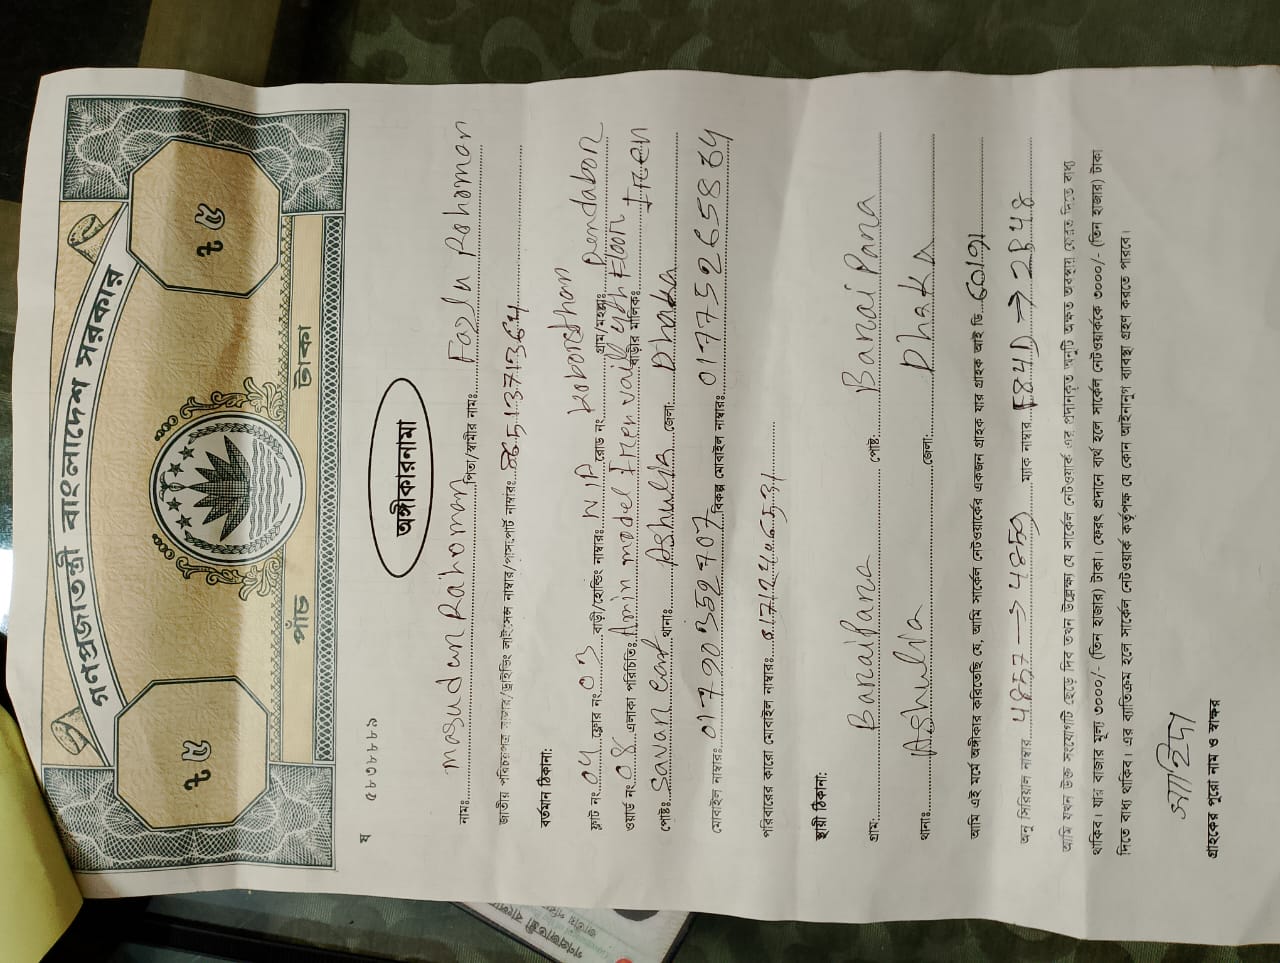 গণপ্রজাতন্ত্রী বাংলাদেশ সরকার
৳ ৫
৳ ৫
পাঁচ টাকা
ষ ৫৮৩৮৮৯
অঙ্গীকারনামা
নামঃ masudur Rahoman পিতা/স্বামীর নামঃ Fazlu Rohoman
জাতীয় পরিচয়পত্র নাম্বার/ড্রাইভিং লাইসেন্স নাম্বার/পাসপোর্ট নাম্বারঃ 8651371364
বর্তমান ঠিকানা:
ফ্লাট নং 04 ফ্লোর নং 03 বাড়ী/হোল্ডিং নাম্বারঃ N/P রোড নং kobonsthan গ্রাম/মহল্লাঃ Dendabor
ওয়ার্ড নং 08 এলাকা পরিচিতিঃ Amin model Town vail 4th Floor বাড়ীর মালিকঃ
পোষ্টঃ Savar Cant থানাঃ Ashulia জেলা: Dhaka
মোবাইল নাম্বারঃ 01790352707 বিকল্প মোবাইল নাম্বারঃ 01775265834
পরিবারের কারো মোবাইল নাম্বারঃ 01712406531
স্থায়ী ঠিকানা:
গ্রাম: BaraiPara পোষ্ট: BaraiPara
থানাঃ Ashulia জেলা: Dhaka
আমি এই মর্মে অঙ্গীকার করিতেছি যে, আমি সার্কেল নেটওয়ার্কের একজন গ্রাহক যার গ্রাহক আই ডি
অনু সিরিয়াল নাম্বার 4857 → 4859 ম্যাক নাম্বার F84D → 2P48
আমি যখন উক্ত সংযোগটি ছেড়ে দিব তখন উল্লেক্ষ্য যে সার্কেল নেটওয়ার্ক এর প্রদানকৃত অনুটি অক্ষত অবস্থায় ফেরত দিতে বাধ্য
থাকিব। যার বাজার মূল্য ৩০০০/- (তিন হাজার) টাকা। ফেরৎ প্রদানে ব্যর্থ হলে সার্কেল নেটওয়ার্ককে ৩০০০/- (তিন হাজার) টাকা
দিতে বাধ্য থাকিব। এর ব্যাতিক্রম হলে সার্কেল নেটওয়ার্ক কর্তৃপক্ষ যে কোন আইনানুগ ব্যাবস্থা গ্রহণ করতে পারবে।
গ্রাহকের পুরো নাম ও স্বাক্ষর